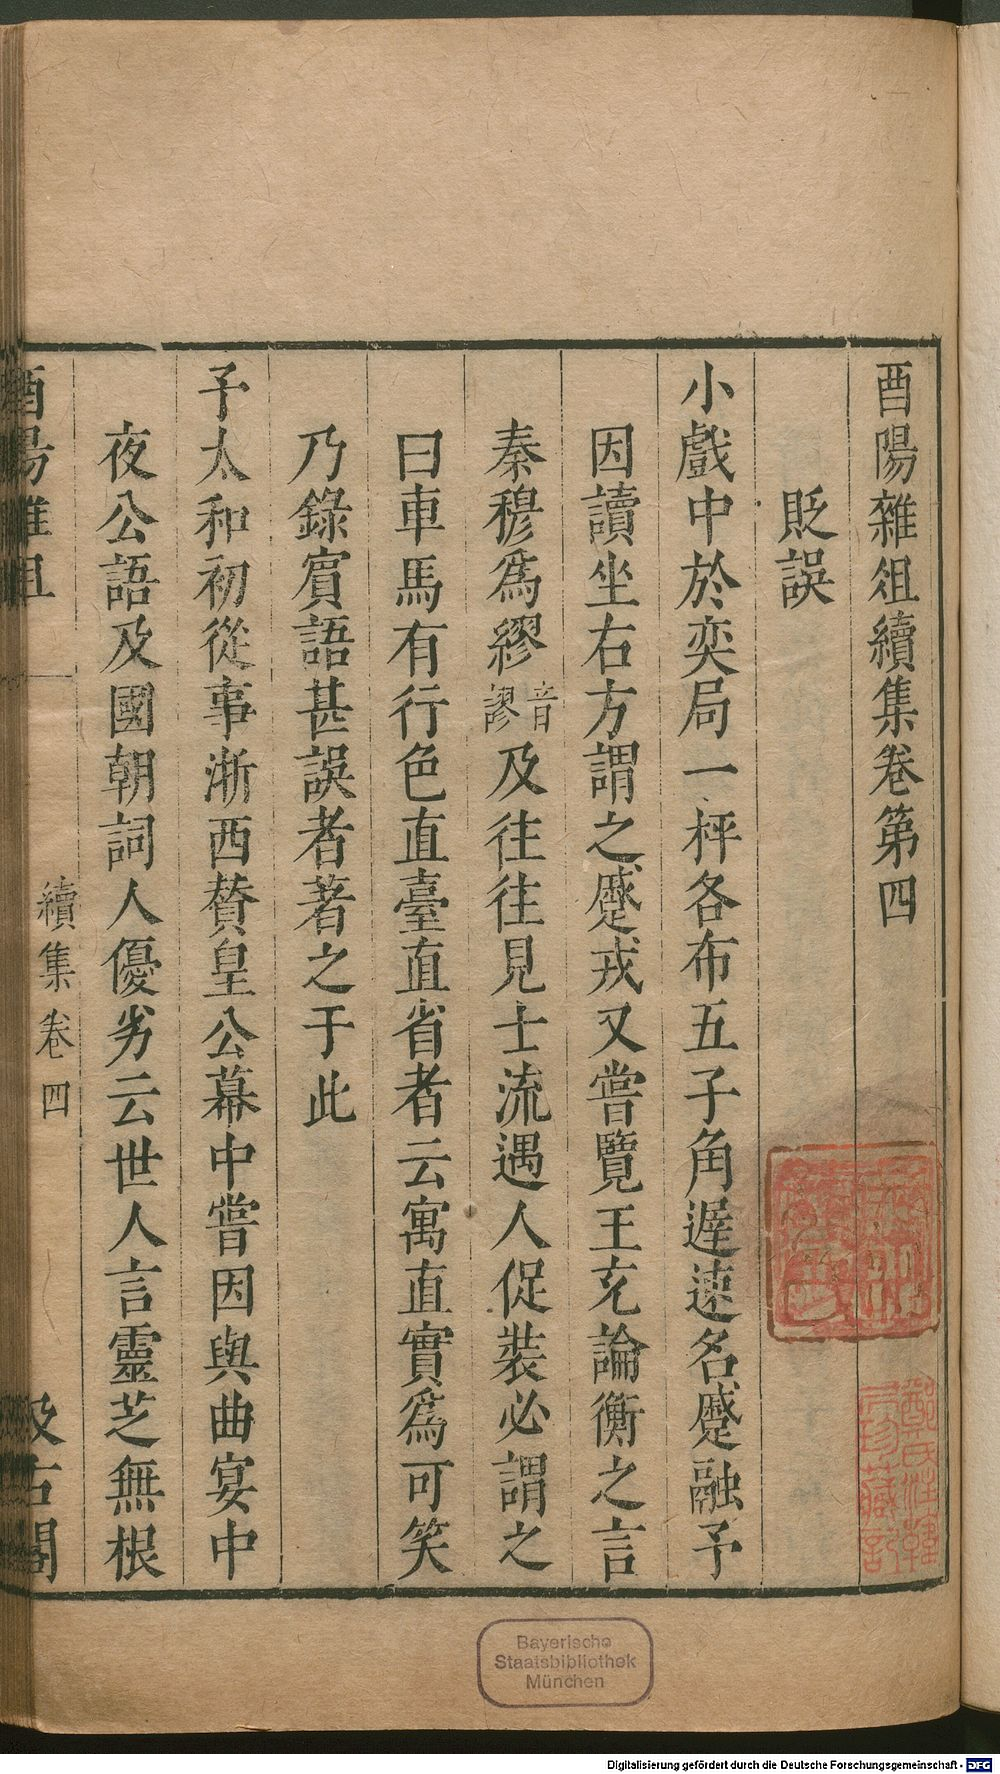 酉陽雜俎續集卷第四
貶誤
小戲中於奕局一枰各布五子角遲速名蹙融予
因讀坐右方謂之蹙戎又嘗覽王充論衡之言
秦穆為繆音謬及往往見士流遇人促裝必謂之
曰車馬有行色直臺直省者云寓直實為可笑
乃錄賓語甚誤者著之于此
予太和初從事浙西贊皇公幕中嘗因與曲宴中
夜公語及國朝詞人優劣云世人言靈芝無根
酉陽雜俎
續集卷四
汲古閣
鄭氏注韓
居珍藏記
Bayerische
Staatsbibliothek
München
Digitalisierung gefördert durch die Deutsche Forschungsgemeinschaft - DFG